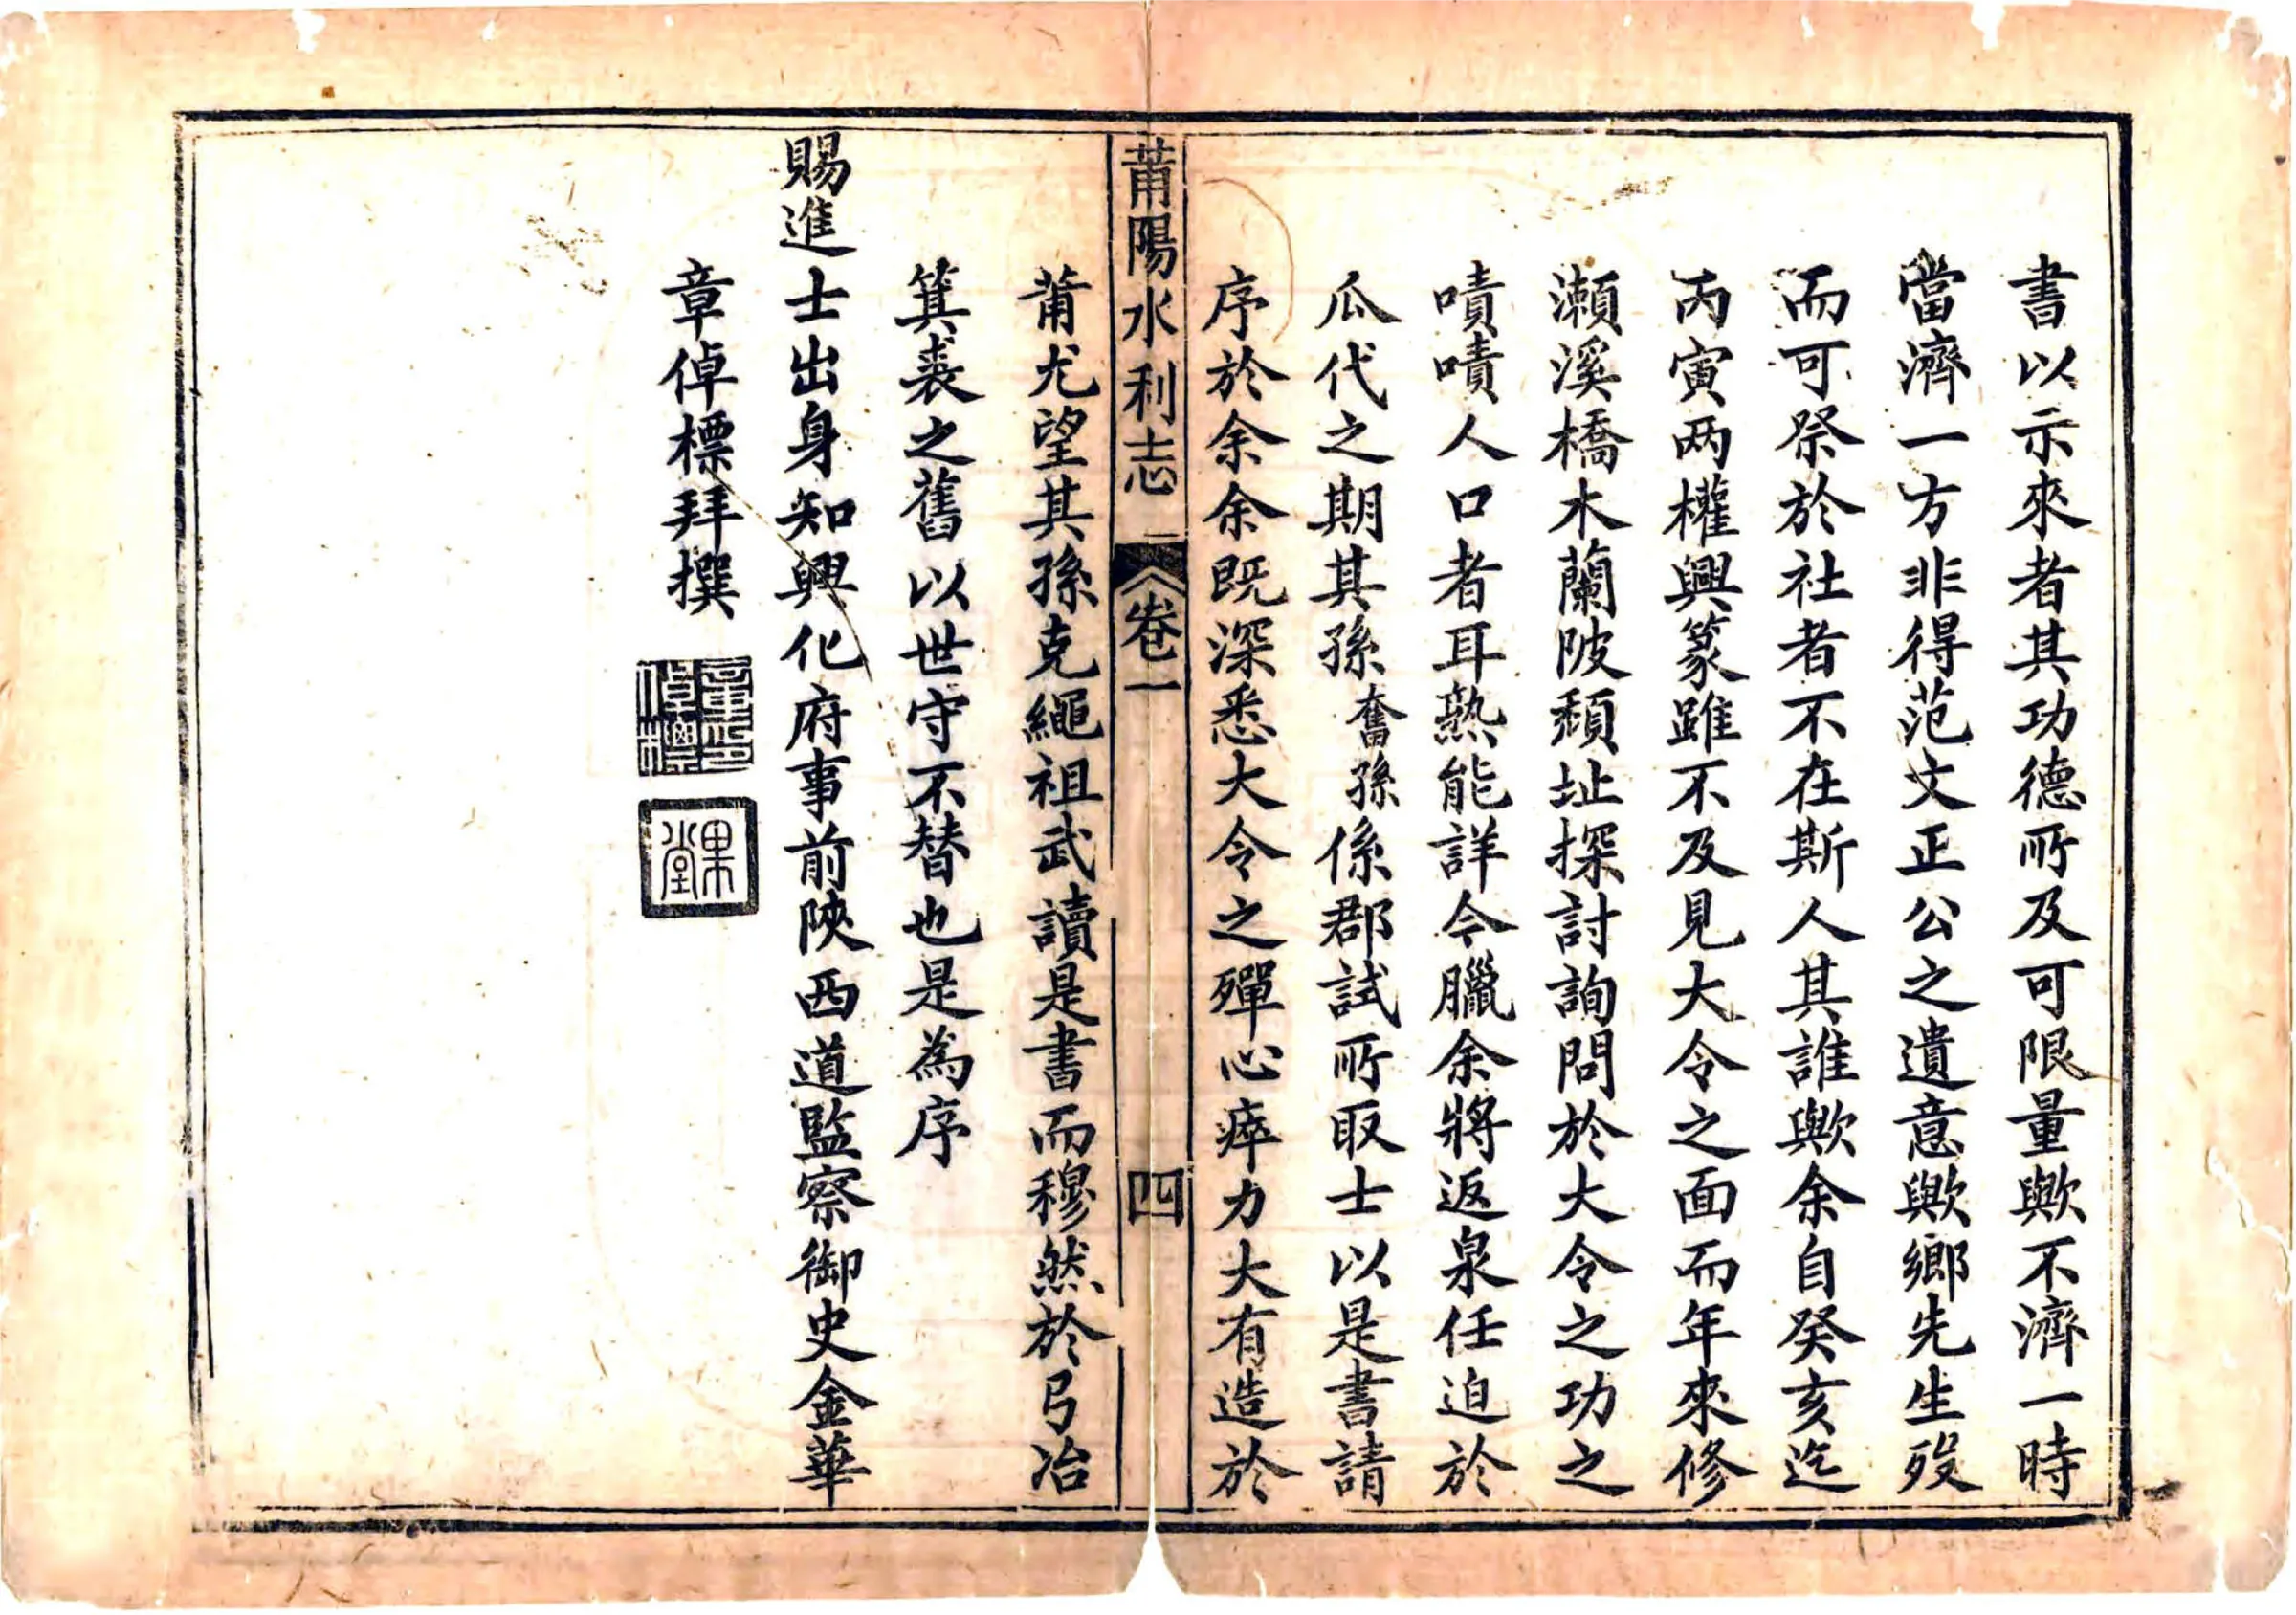 書以示來者其功德所及可限量歟不濟一時
當濟一方非得范文正公之遺意歟鄉先生歿
而可祭於社者不在斯人其誰歟余自癸亥迄
丙寅两權興篆雖不及見大令之面而年來修
瀨溪橋木蘭陂頽址探討詢問於大令之功之
嘖嘖人口者耳熟能詳今臘余將返泉任迫於
瓜代之期其孫奮孫係郡試所取士以是書請
序於余余既深悉大令之殫心瘁力大有造於
莆陽水利志 卷一 四
莆尤望其孫克繩祖武讀是書而穆然於弓冶
箕裘之舊以世守不替也是為序
賜進士出身知興化府事前陝西道監察御史金華
章倬標拜撰
章印倬標
果堂